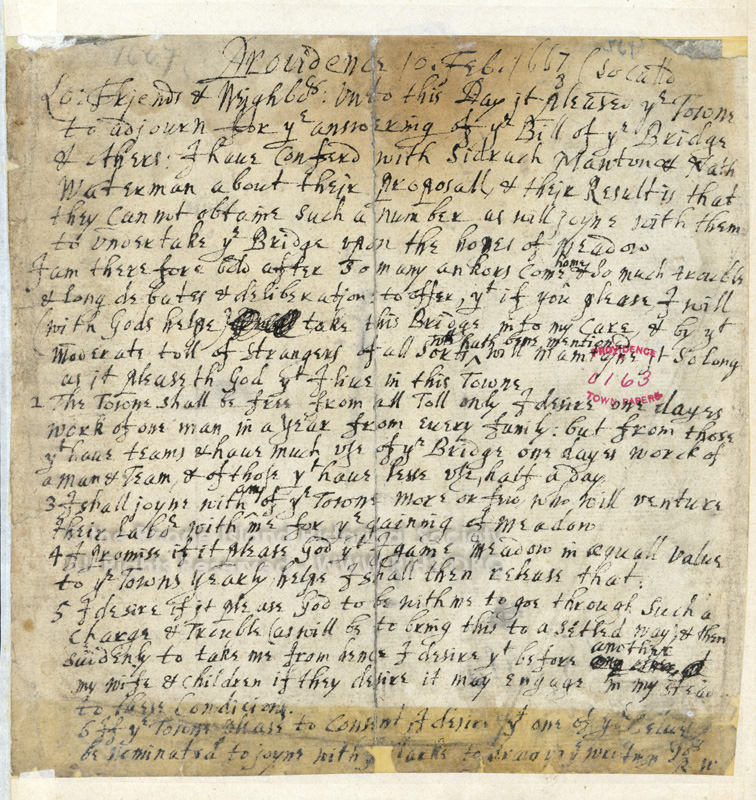 Providence 10. Feb. 1667 (so calld
Lo: Friends & Neighbors: Unto this Day it pleased ye Towne
to adjourn for ye answering of ye Bill of ye Bridge
& others: I have Conferd with Sidrach Manton & Nath
Waterman about their Proposall, & their Result is that
they Cannot obtaine such a number as will joyne with them
to undertake ye Bridge upon the hopes of Meadow
I am therefore bold after so many ankors Come home & so much trouble
& long debates & deliberation: to offer, yt if you please, I will
(with Gods helpe) take this Bridge into my Care, & by yt
Moderate toll of strangers of all sorts, wch hath bene mentioned will maintayne it so long
as it pleaseth God yt I live in this Towne
1 The Towne shall be free from all Toll only I desire one dayes
work of one man in a year from every family: but from those
yt have teams & have much use of ye Bridge one dayes worck of
a man & Team, & of those yt have lesse use, half a day.
3 I shall joyne with any of ye Towne more or few who will venture
their Labor with me for ye gaining of Meadow
4 I Promise if it please God yt I game Meadow in æquall value
to ye Towns yearly helpe I shall then release that.
5 I desire if it please God to be with me to goe through such a
Charge & Trouble (as will be to bring this to a setled way) & then
suddenly to take me from hence I desire yt before another
my wife & Children if they desire it may engage in my stead
to these Condicions.
6 If ye Towne please to Consent I desire yt one of ye
be nominated to joyne with ye Clarke to draw up ye writing
R W
PROVIDENCE
0163
TOWN PAPERS
1667